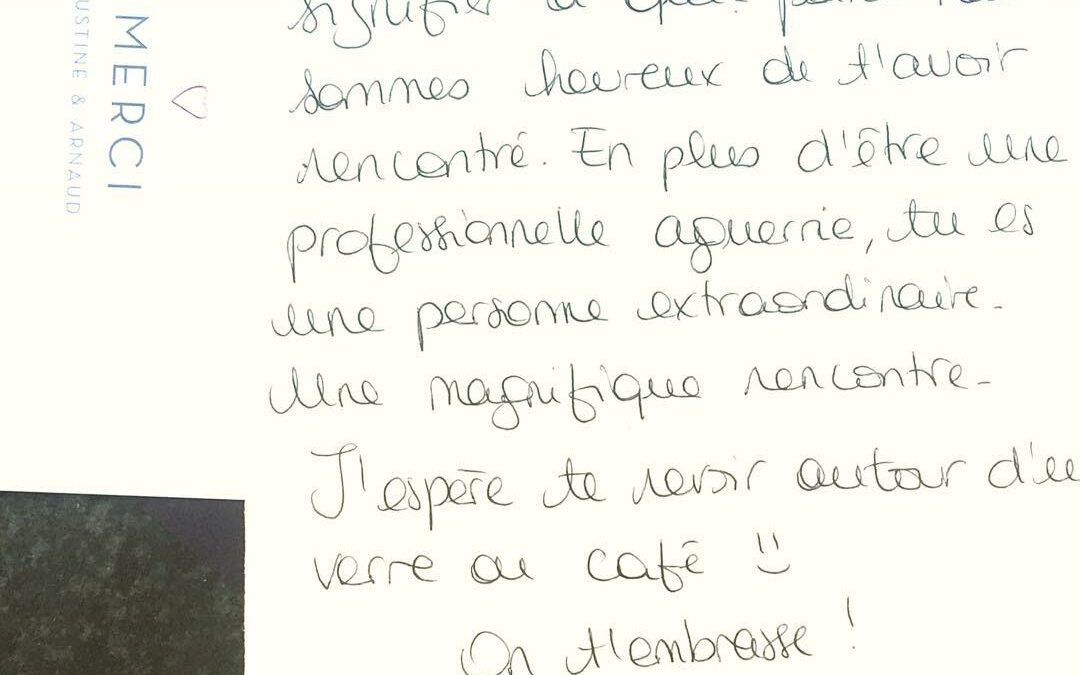 MERCI
USTINE & ARNAUD
signifier à
sommes heureux de t'avoir
rencontré. En plus d'être une
professionnelle aguerrie, tu es
une personne extraordinaire.
Une magnifique rencontre.
J'espère te revoir autour d'u
verre ou café
On t'embrasse !